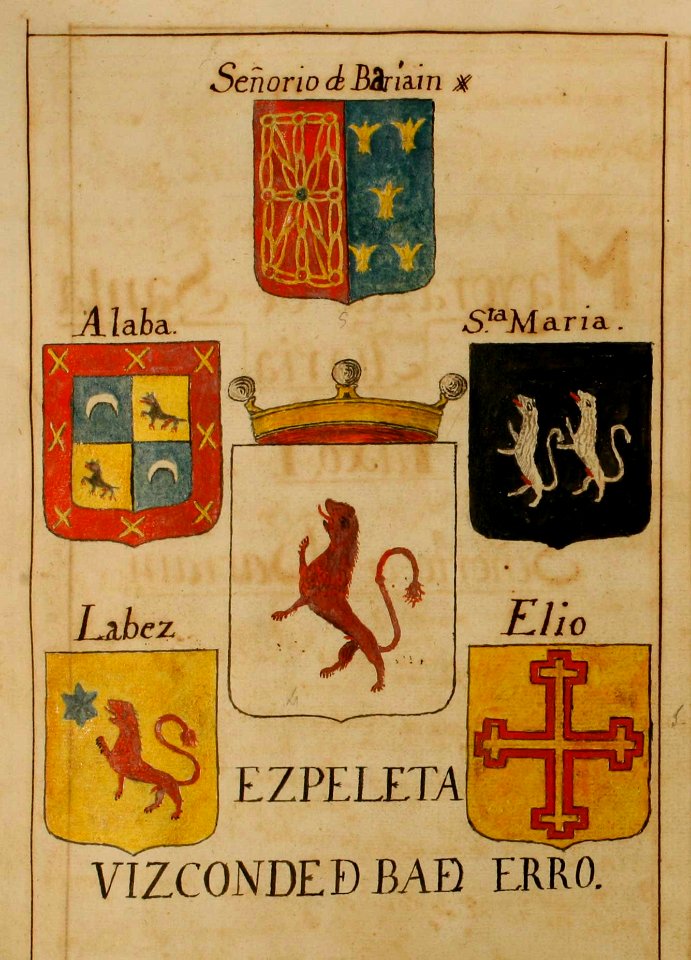 Señorio de Bariain
Alaba.
S.ta Maria.
Labez
Elio
EZPELETA
VIZCONDE ERRO.